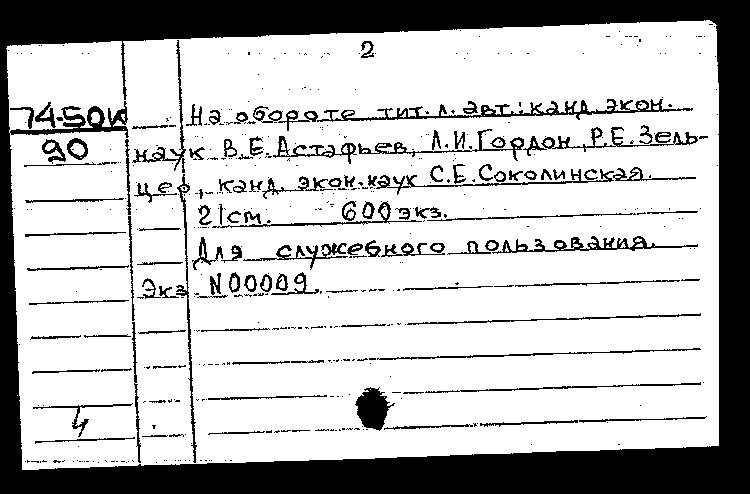 2
74-50к
90
На обороте тит. л. авт.: канд. экон.
наук В.Е.Астафьев, Л.И.Гордон, Р.Е.Зель-
цер, канд. экон. наук С.Е.Соколинская.
21см. 600экз.
Для служебного пользования.
Экз N00009.
4